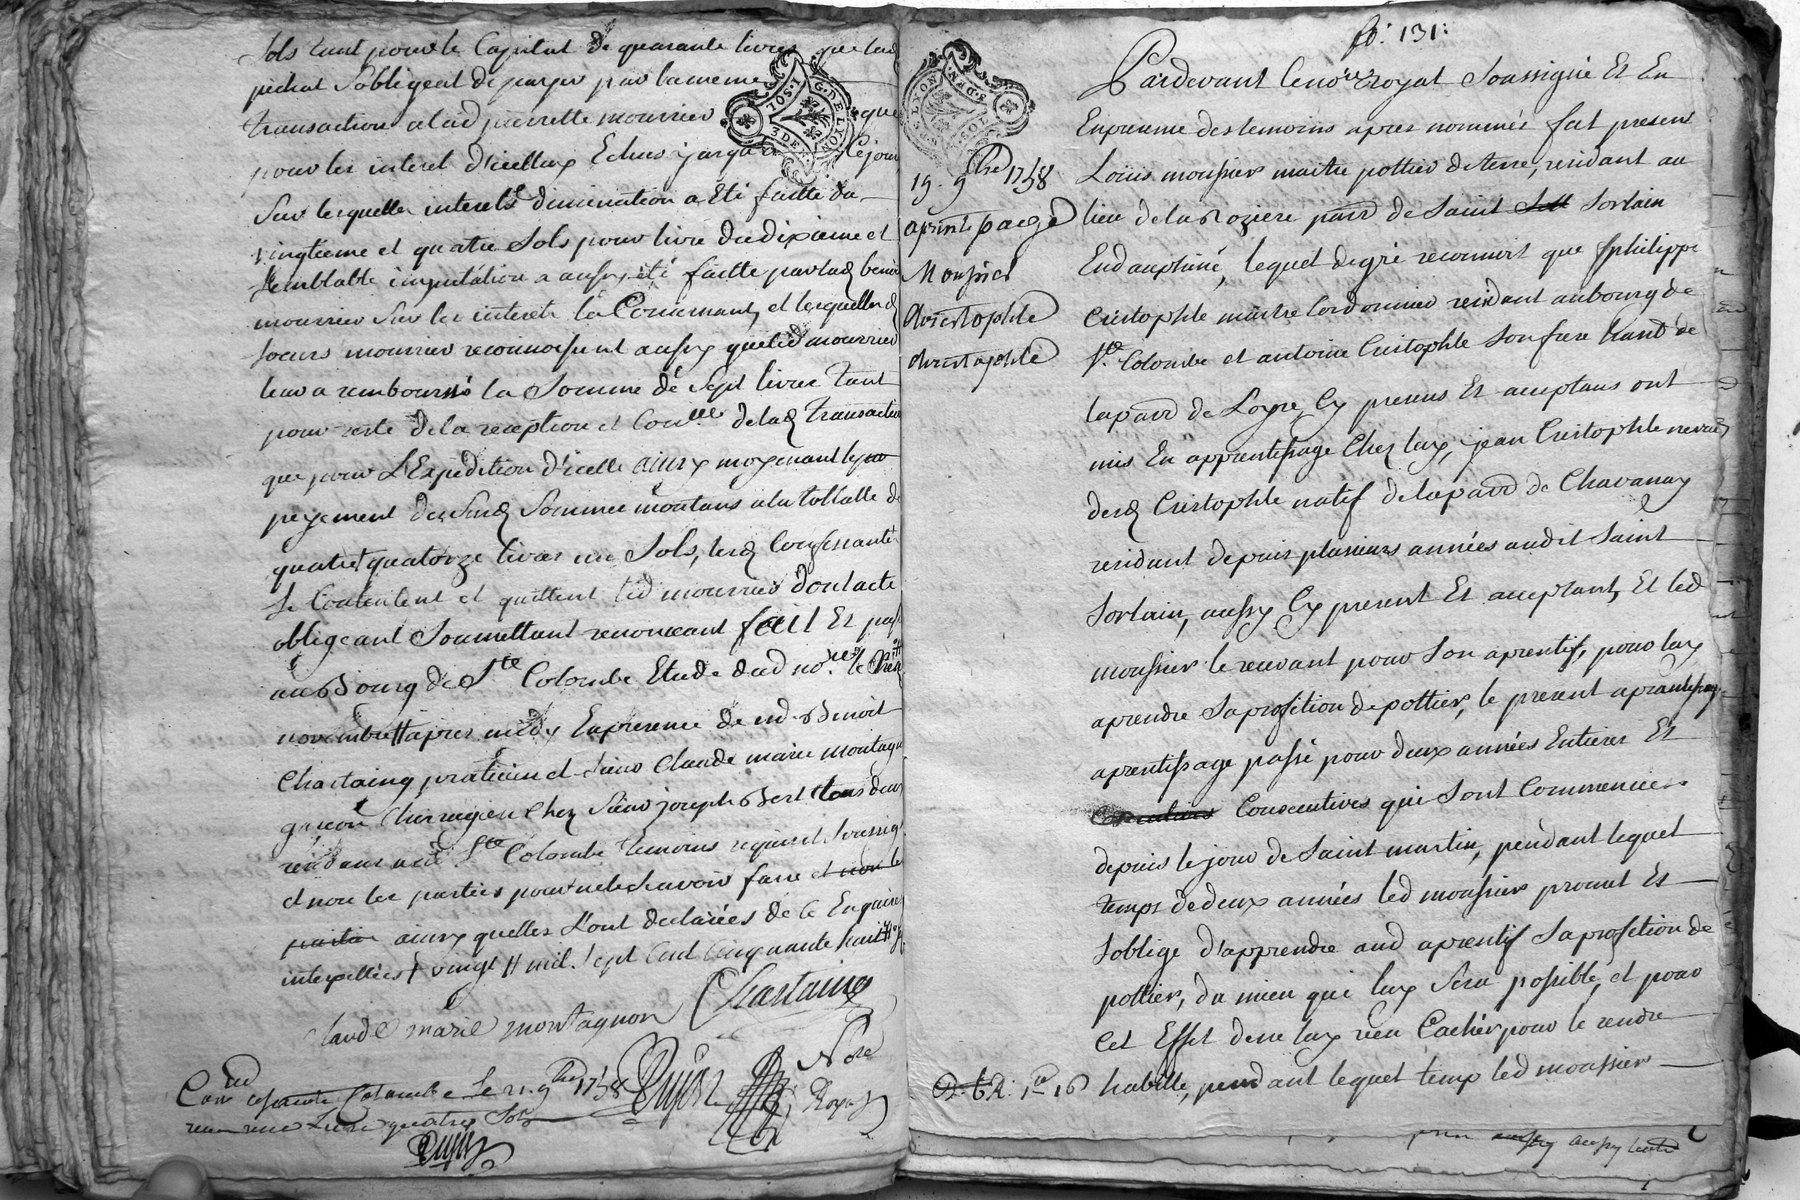 sols tant pour le Capital de quarante livres que lad
pichat sobligeat de payer par la meme
transaction a lad pierrette mourrier que
pour les interet d'icelluy Echus jusqu'a Cejour
Sur lesquelles interets diminution a Eté faitte du
vingtieme et quatre sols pour livre du dixieme et
semblable imputation a aussy eté faitte par lad benoi
mourrier Sur les interets la Concernant, et lesquelles d
soeurs mourrier reconnoissent aussy que led mourrier
leur a remboursé la Somme de Sept livres tant
pour reste de la reception et Con.lle de lad transaction
que pour L'Expedition d'icelle ainsy moyenant le
payement desusd Sommes montans a la totalle de
quatre quatorze livres un Sols, lesd Confessantes
Se Contentent et quittent led mourrier dont acte
obligeant Soumettant renonceant fait Et passé
au Bourg de Ste Colombe Etude dud no.re le
novembre apres midy En presence de sr Benoit
Chastaing praticien et sieur Claude marie montagn
garcon Chirurgien Chez Sieur joseph Bert tous deux
residans aud Ste Colombe temoins requis et soussig
et non les parties pour ne le scavoir faire et non les
parties ainsy quelles L'ont declarées de ce Enquises
interpellées vingt mil Sept Cent Cinquante huit
Chastaing
Claude marie montagnon
Dujon
Nore
Royal
Con.lé a Sainte Colombe Le 21. 9bre 1758
reçu une Livre quatre Sols
Dujon
fo: 131:
19. 9bre 1758
aprentissage
Moussier
Christophle
Christophle
Pardevant le no.re royal Soussigné Et En
Enpresence des temoins apres nommés fut present
Louis moussier maitre pottier de terre, residant au
lieu de la Roziere parr de Saint Sorlain
En dauphiné, lequel de gré reconnoit que sr philippe
Cristophle maitre Cordonnier residant au bourg de
Ste Colombe et antoine Cristophle son frere hand de
la parr de Loyre, Cy presens Et acceptans ont
mis En apprentissage Chez luy, jean Cristophle neveu
desd Cristophle natif de la parr de Chavanay
residant depuis plusieurs années audit Saint
Sorlain, aussy Cy present Et acceptant, Et led
moussier le recevant pour Son aprentif, pour luy
aprendre Sa profetion de pottier, le present aprantissag
aprentissage passé pour deux années Entieres Et
Consecutives qui Sont Commencées
depuis le jour de Saint martin, pendant lequel
temps de deux années led moussier promet Et
Soblige d'apprendre aud aprentif Sa profetion de
pottier, du mieu qui luy Sera possible, et pour
Cet Effet de ne luy rien Cacher pour le rendre
habille, pendant lequel temp led moussier